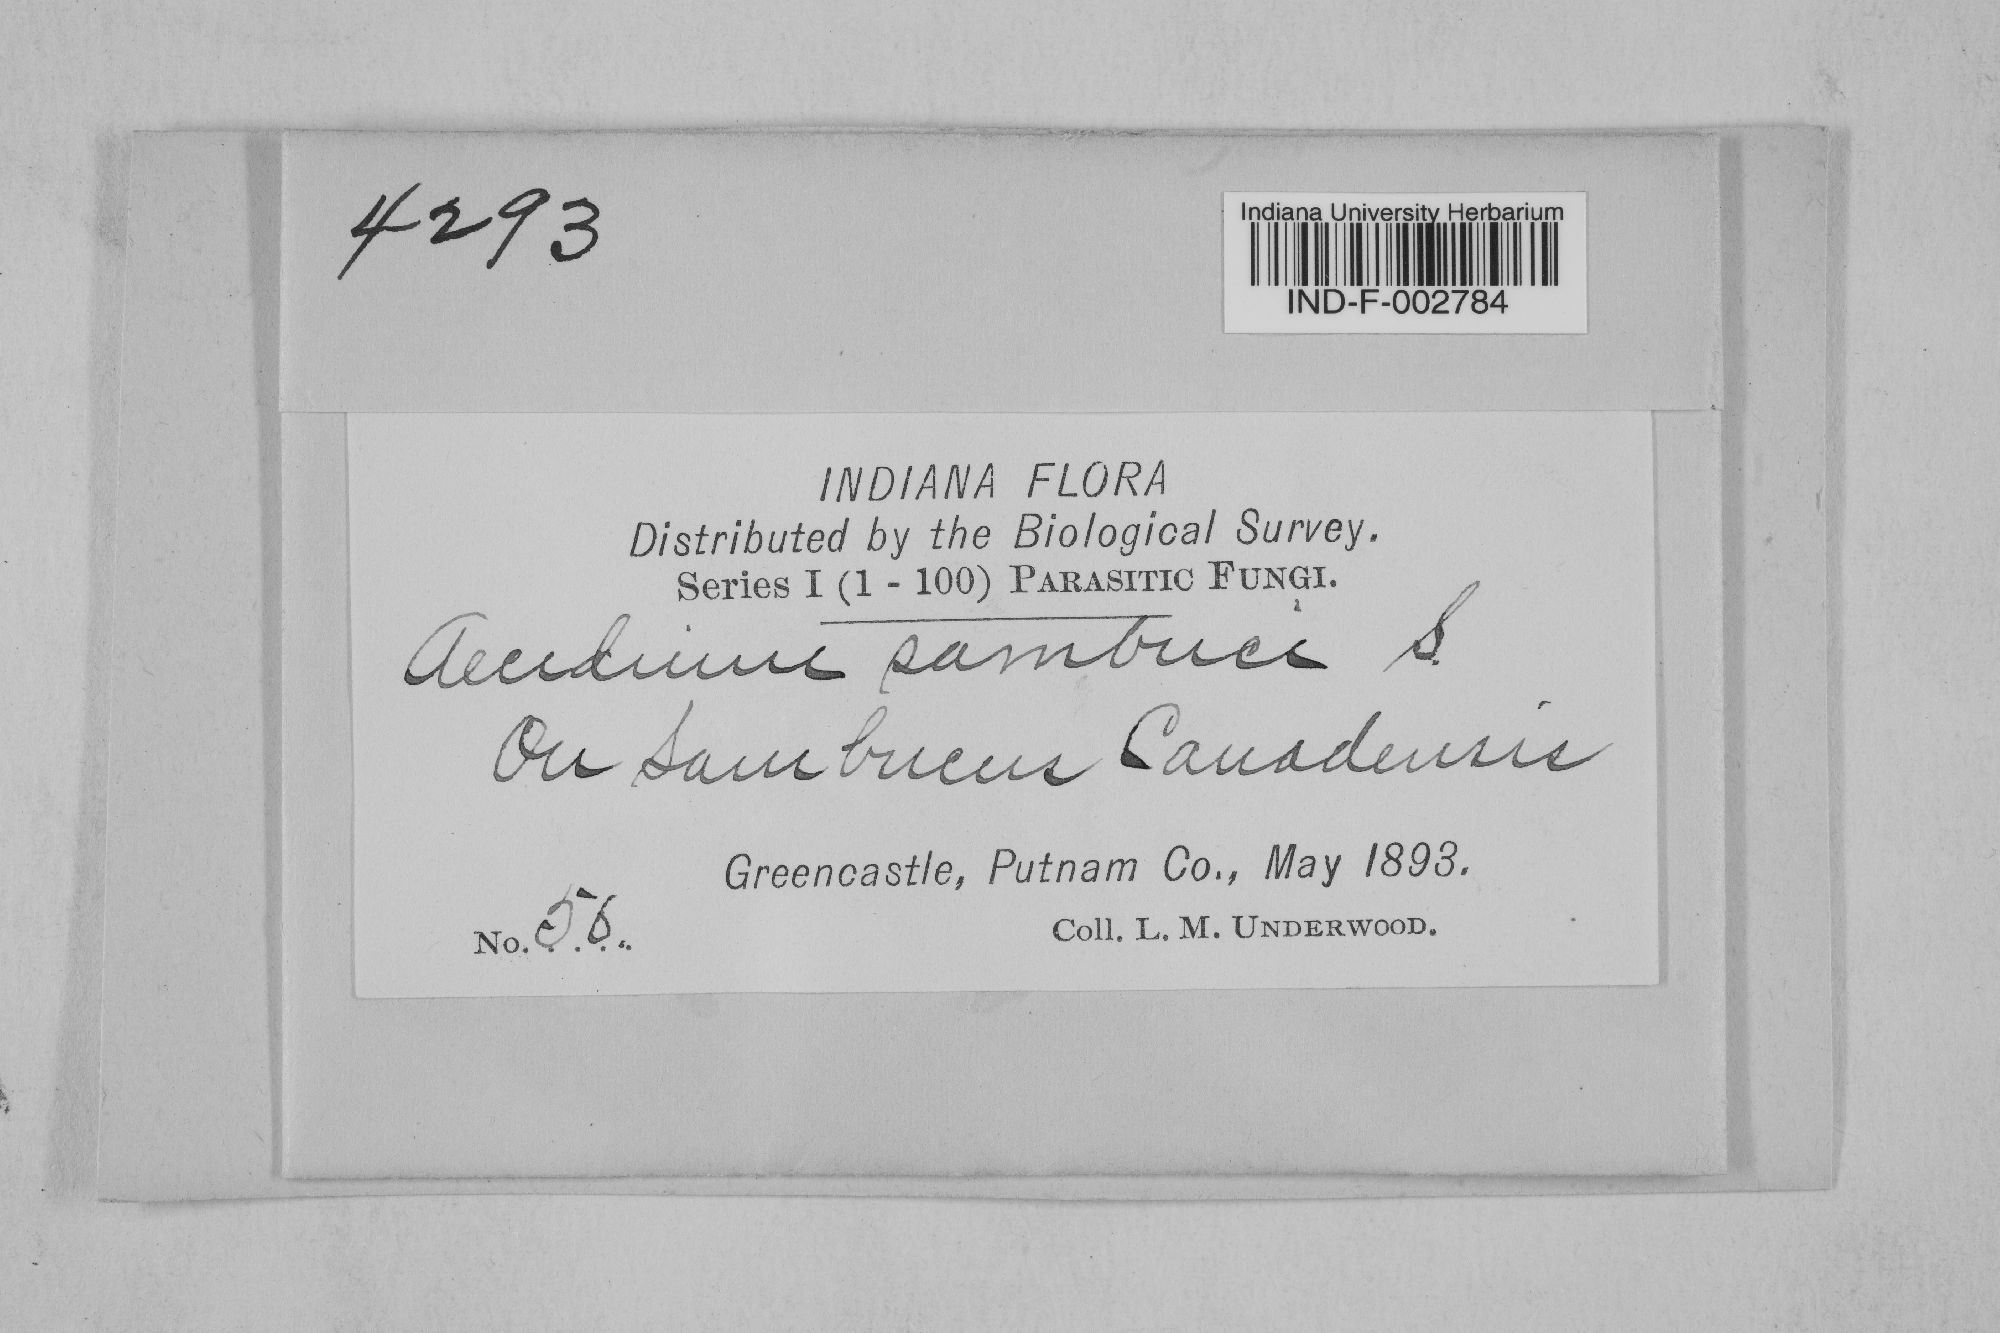 4293
Indiana University Herbarium
IND-F-002784
INDIANA FLORA
Distributed by the Biological Survey.
Series I (1 - 100) PARASITIC FUNGI.
Aecidium sambuci S.
On Sambucus Canadensis
Greencastle, Putnam Co., May 1893.
No. 56
Coll. L. M. UNDERWOOD.